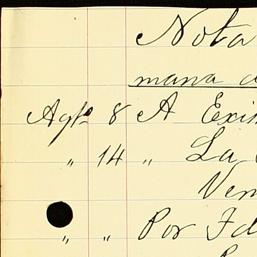 Nota
mana a
Agto 8 A Exis
" 14 " La
Ven
" " Por Fd